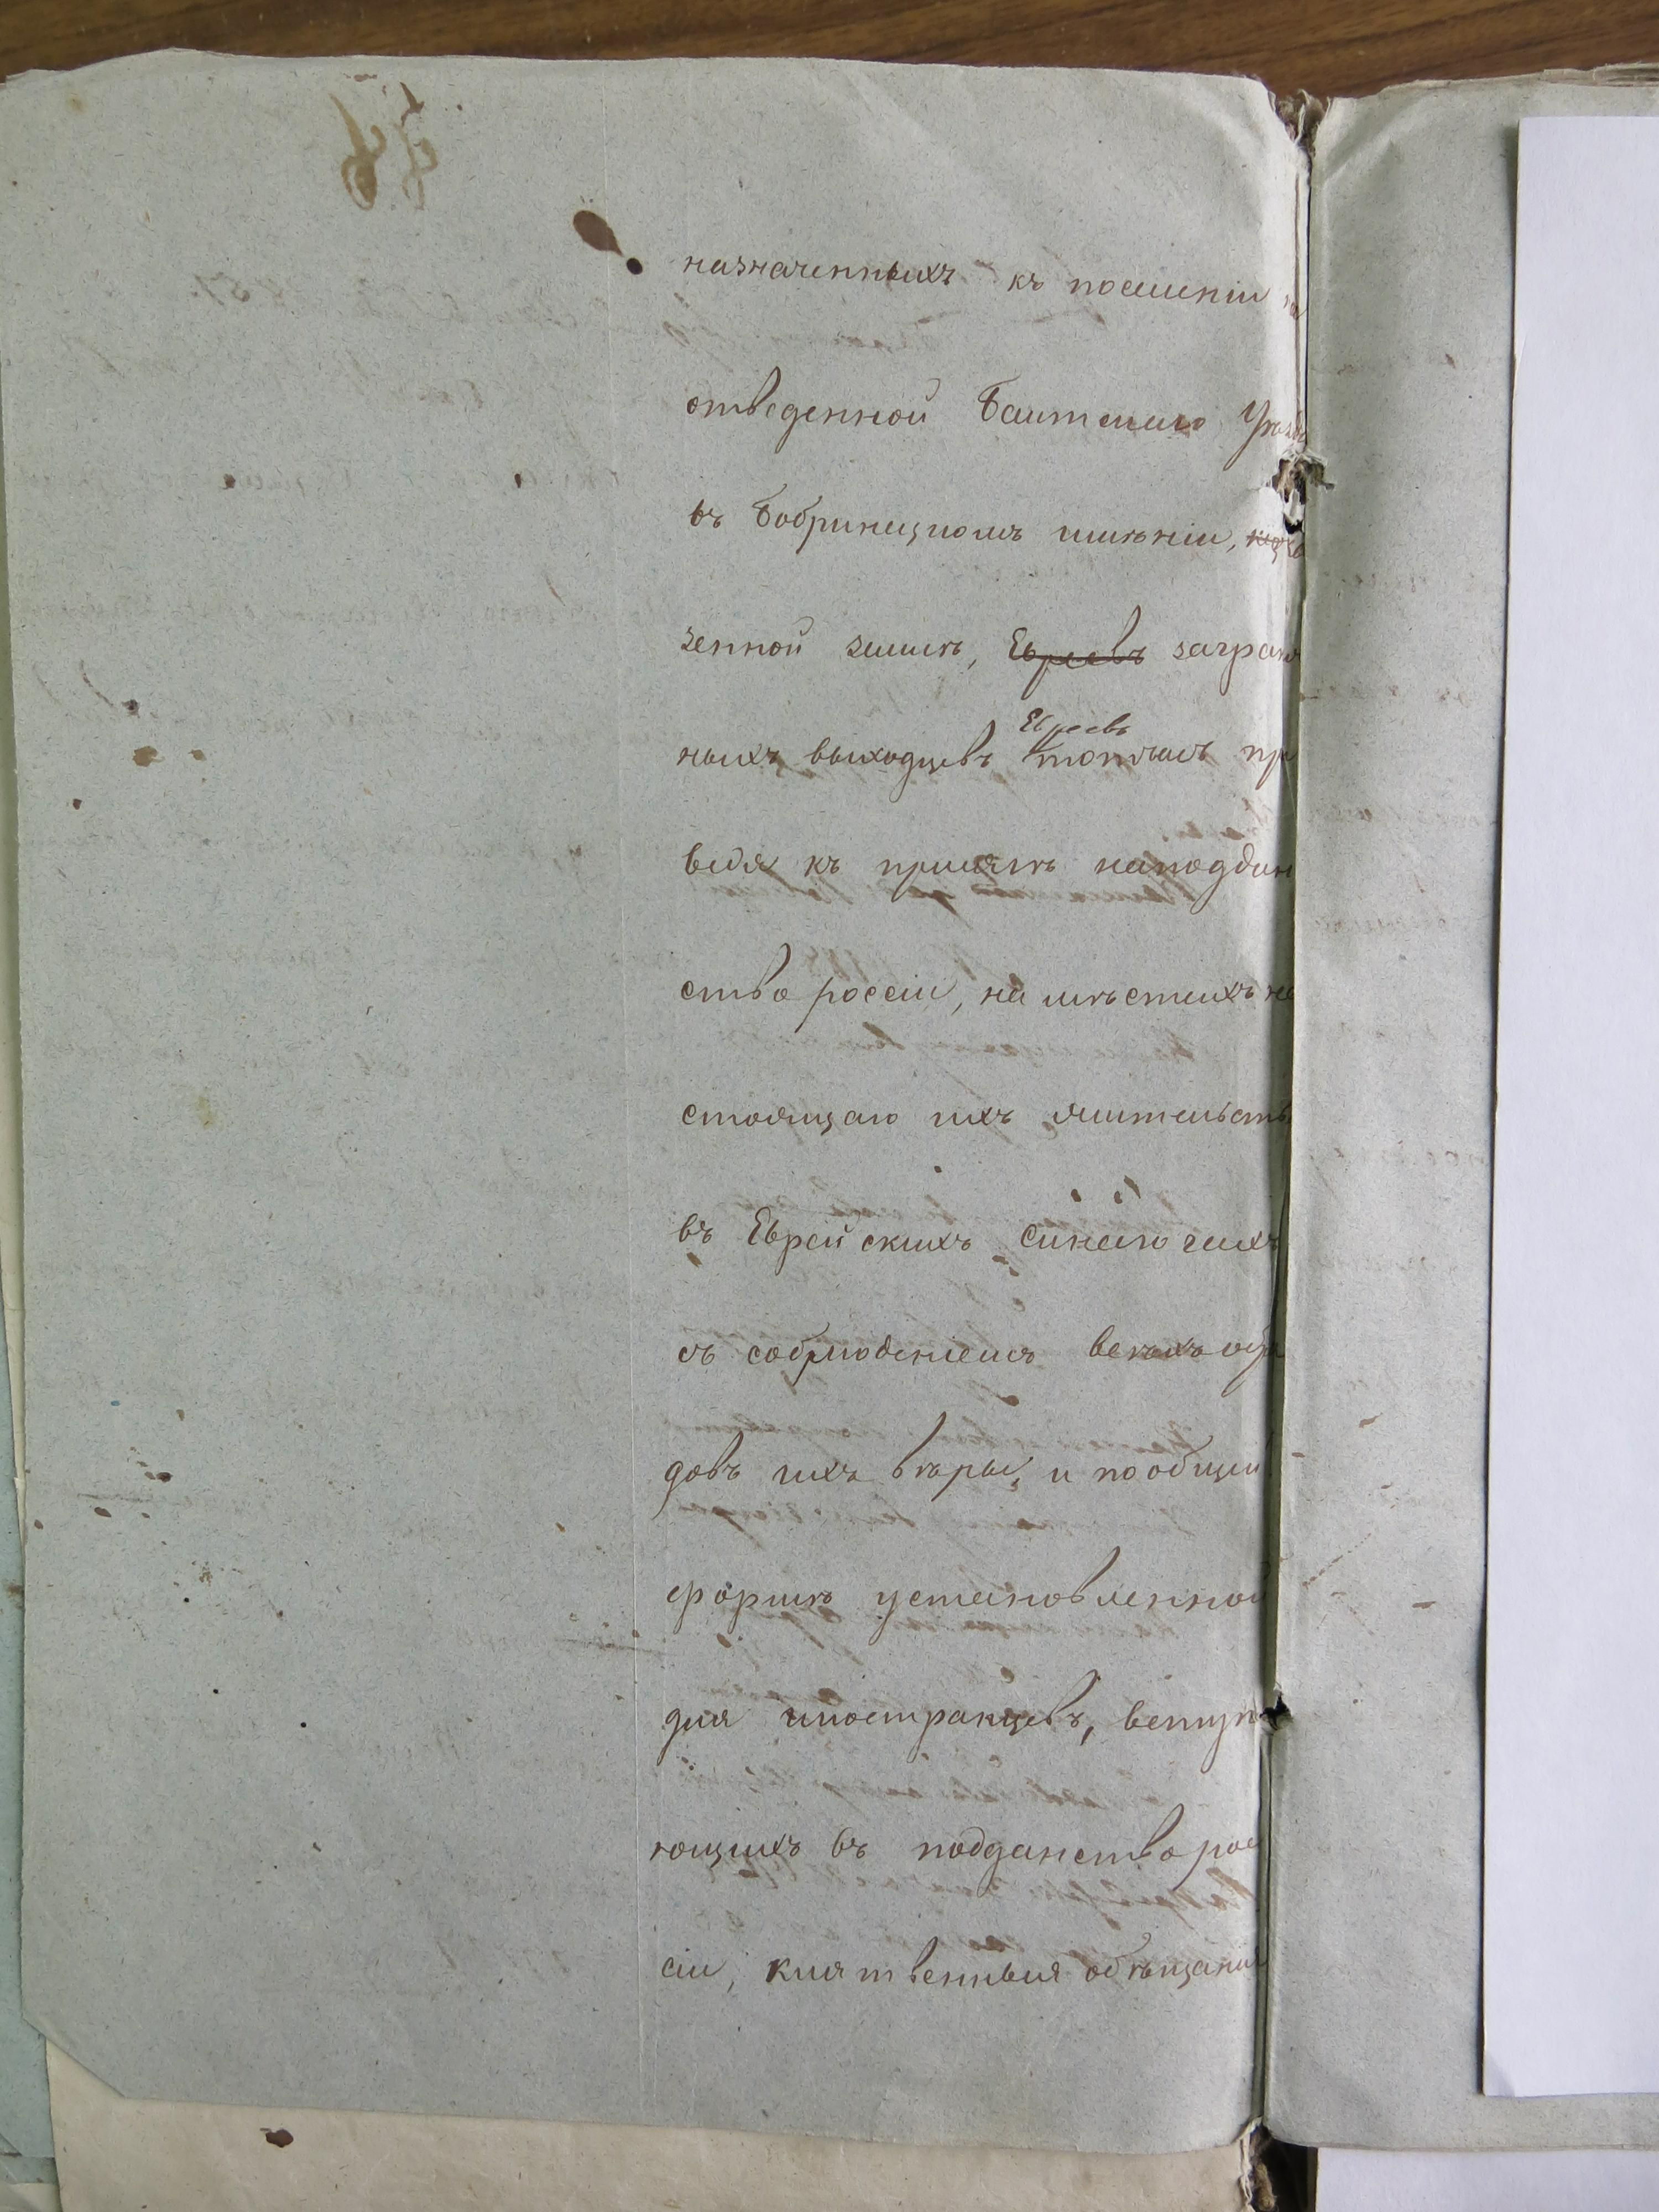 назначенныхъ къ поселенію на
отведенной Баштемиго Уѣзд
въ Бобринецкомъ имѣніи, ка
зенной землѣ, Евреевъ загранич
Евреевъ
ныхъ выходцевъ тотчасъ при
ведя къ присягѣ наподдан
ство россіи, на мѣстахъ на
стоящаго ихъ жительств
въ Еврейскихъ синагогахъ
съ соблюденіемъ всѣхъ обря
довъ ихъ вѣры, и по общей
формѣ установленной
для иностранцевъ, вступа
ющихъ въ подданство рос
сіи, клятвенныя обѣщанія